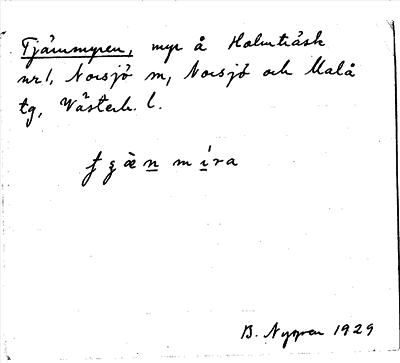 Tjärnmyren, myr å Holmträsk
nr 1, Norsjö sn, Norsjö och Malå
tg, Västerb. l.
B. Nygren 1929